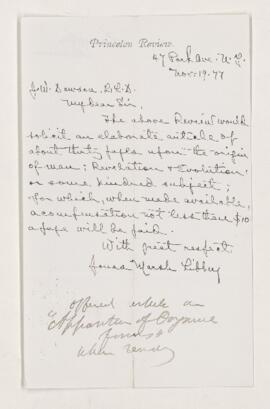 Princeton Review.
47 Park Ave. N.Y.
Nov. 19. 77
J. W. Dawson, LL.D.
My dear Sir,
The above Review would
solicit an elaborate article of
about thirty pages upon "the origin
of man; Revelation & Evolution",
or some kindred subject;
for which, when made available,
a compensation not less than $10
a page will be paid.
With great respect
Jonas Marsh Libbey
offered article on
"Apparition of
forms"
when ready